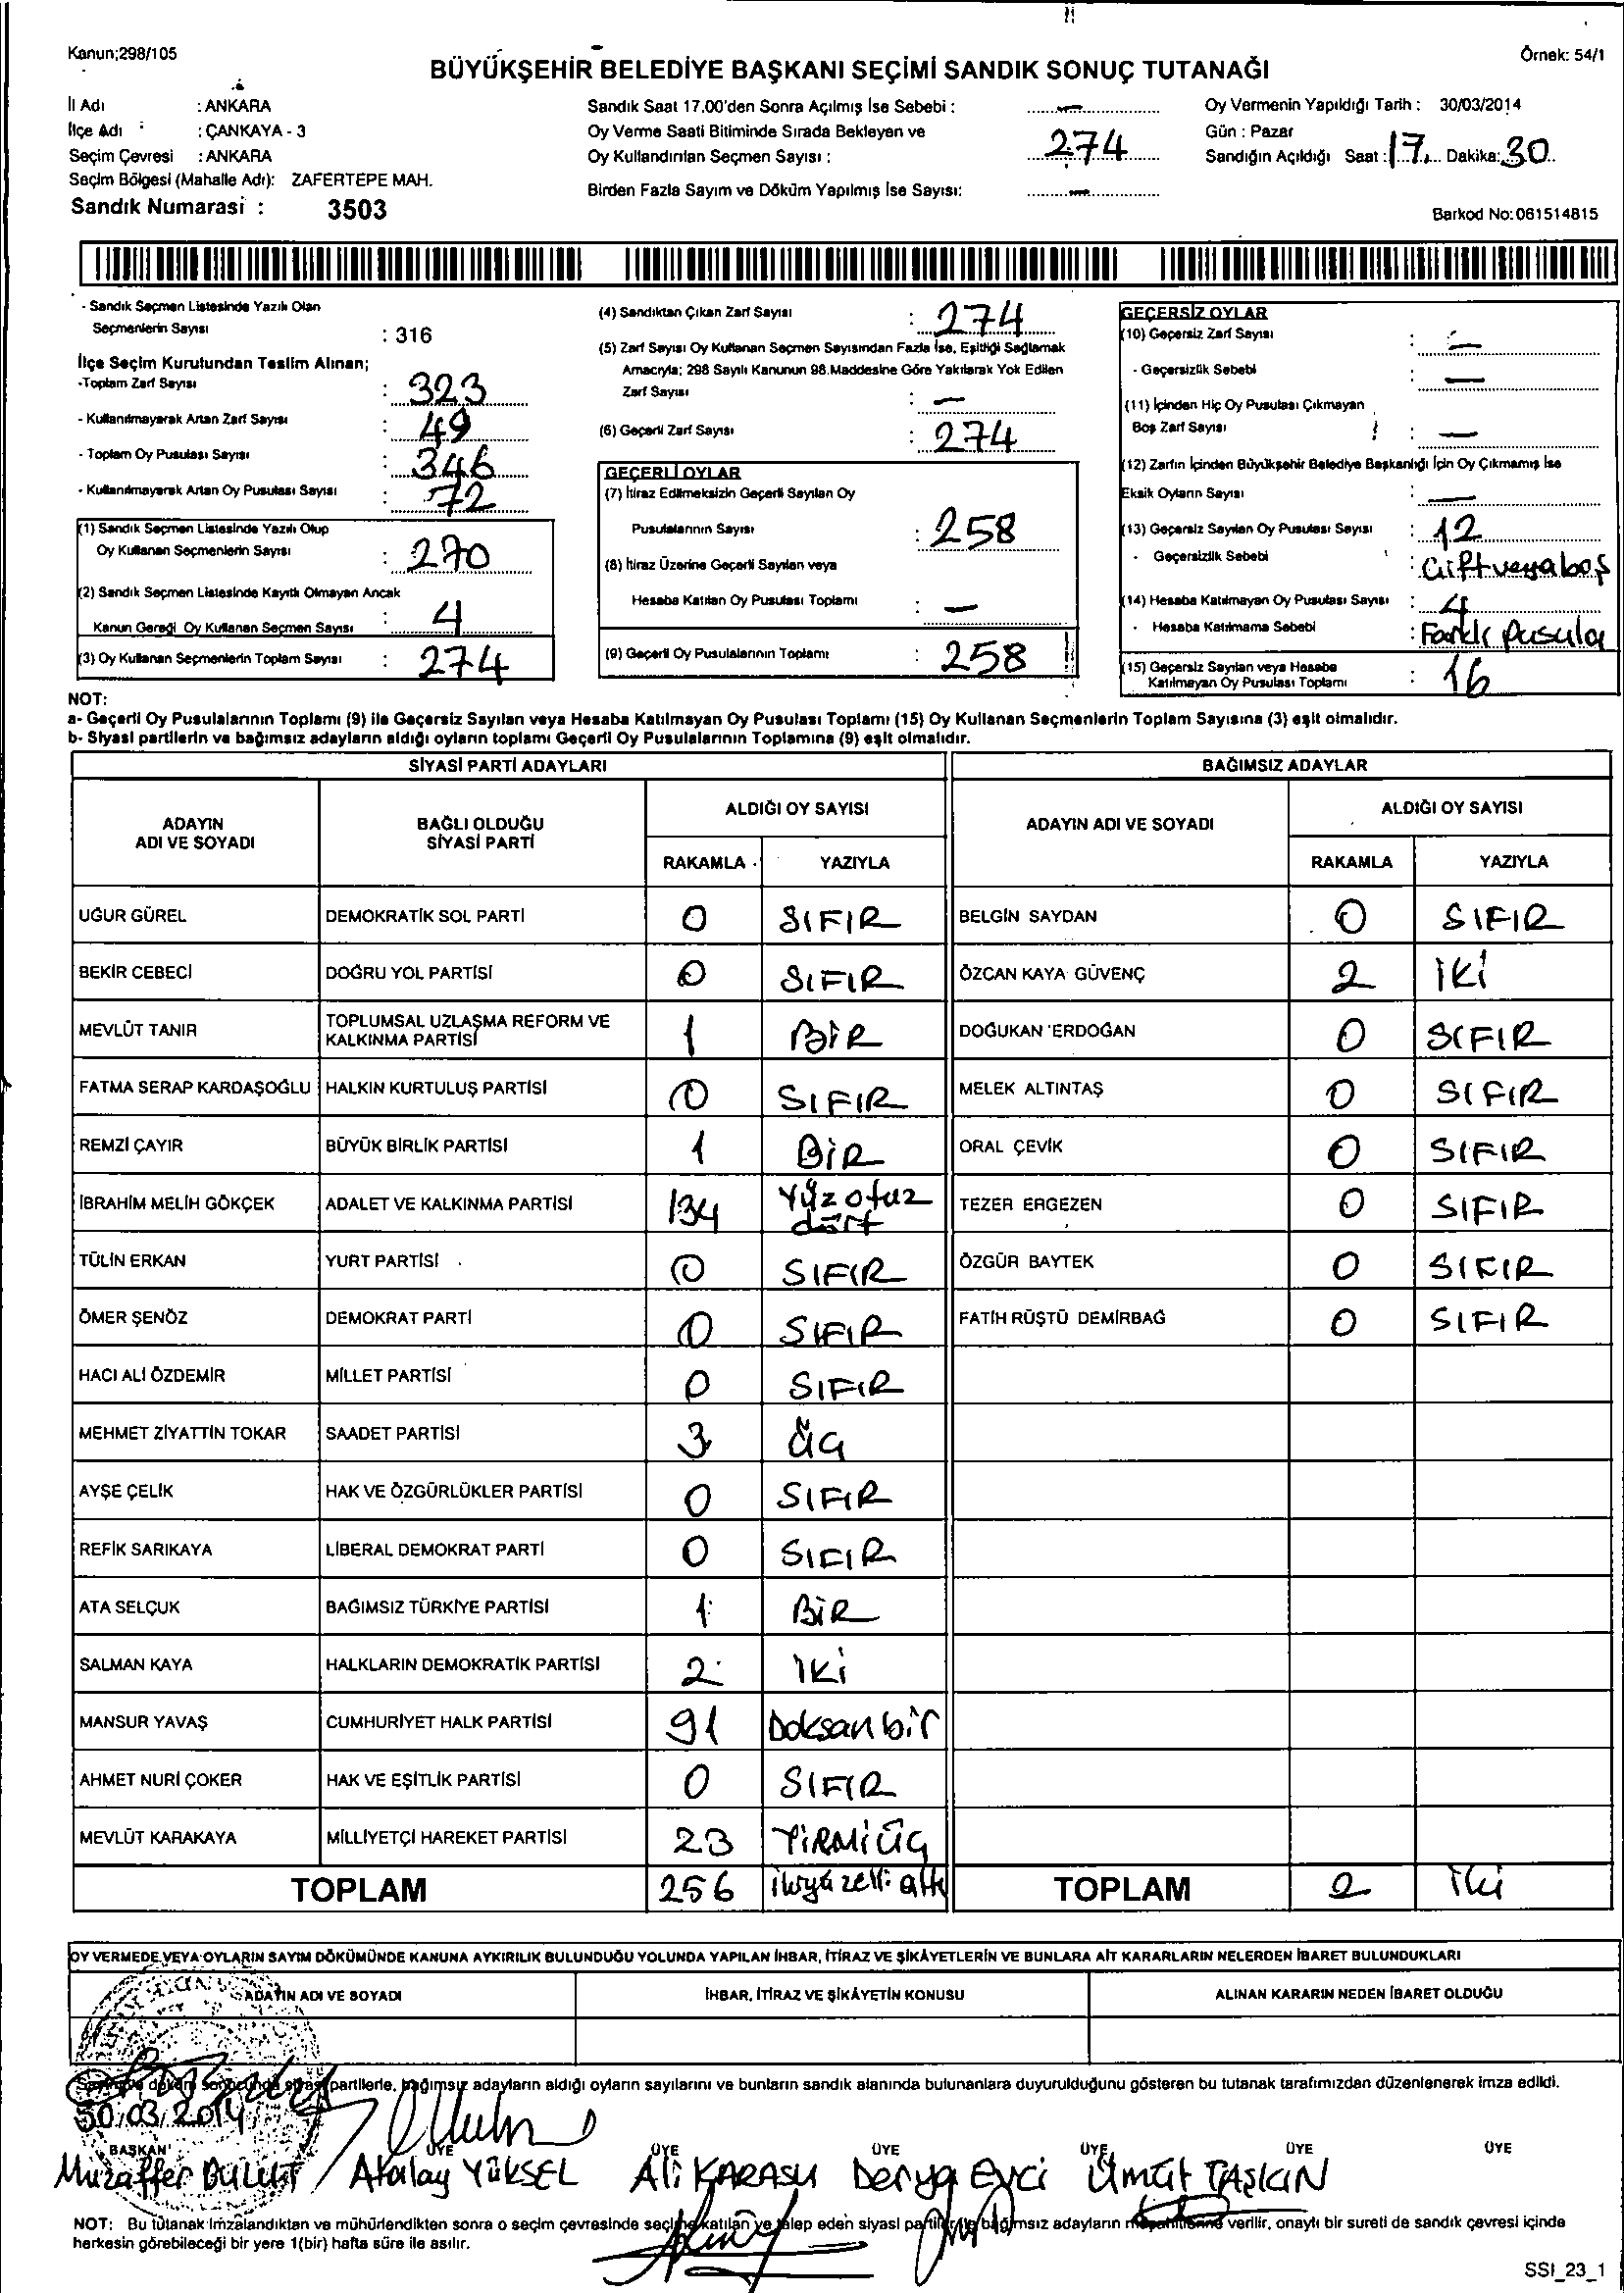 Kanun;298/105
Örnek: 54/1
BÜYÜKŞEHİR BELEDİYE BAŞKANI SEÇİMİ SANDIK SONUÇ TUTANAĞI
İl Adı : ANKARA
İlçe Adı : ÇANKAYA - 3
Seçim Çevresi : ANKARA
Seçim Bölgesi (Mahalle Adı): ZAFERTEPE MAH.
Sandık Numarası : 3503
Sandık Saat 17.00'den Sonra Açılmış İse Sebebi : —
Oy Verme Saati Bitiminde Sırada Bekleyen ve
Oy Kullandırılan Seçmen Sayısı : 274
Birden Fazla Sayım ve Döküm Yapılmış İse Sayısı: —
Oy Vermenin Yapıldığı Tarih : 30/03/2014
Gün : Pazar
Sandığın Açıldığı Saat : 17 Dakika: 30
Barkod No: 061514815
- Sandık Seçmen Listesinde Yazılı Olan
Seçmenlerin Sayısı : 316
İlçe Seçim Kurulundan Teslim Alınan;
-Toplam Zarf Sayısı : 323
- Kullanılmayarak Artan Zarf Sayısı : 49
- Toplam Oy Pusulası Sayısı : 346
- Kullanılmayarak Artan Oy Pusulası Sayısı : 72
(1) Sandık Seçmen Listesinde Yazılı Olup
Oy Kullanan Seçmenlerin Sayısı : 270
(2) Sandık Seçmen Listesinde Kayıtlı Olmayan Ancak
Kanun Gereği Oy Kullanan Seçmen Sayısı : 4
(3) Oy Kullanan Seçmenlerin Toplam Sayısı : 274
(4) Sandıktan Çıkan Zarf Sayısı : 274
(5) Zarf Sayısı Oy Kullanan Seçmen Sayısından Fazla İse, Eşitliği Sağlamak
Amacıyla; 298 Sayılı Kanunun 98.Maddesine Göre Yakılarak Yok Edilen
Zarf Sayısı : —
(6) Geçerli Zarf Sayısı : 274
GEÇERLİ OYLAR
(7) İtiraz Edilmeksizin Geçerli Sayılan Oy
Pusulalarının Sayısı : 258
(8) İtiraz Üzerine Geçerli Sayılan veya
Hesaba Katılan Oy Pusulası Toplamı : —
(9) Geçerli Oy Pusulalarının Toplamı : 258
GEÇERSİZ OYLAR
(10) Geçersiz Zarf Sayısı : —
- Geçersizlik Sebebi : —
(11) İçinden Hiç Oy Pusulası Çıkmayan
Boş Zarf Sayısı : —
(12) Zarfın İçinden Büyükşehir Belediye Başkanlığı İçin Oy Çıkmamış İse
Eksik Oyların Sayısı : —
(13) Geçersiz Sayılan Oy Pusulası Sayısı : 12
- Geçersizlik Sebebi : Çift veya boş
(14) Hesaba Katılmayan Oy Pusulası Sayısı : 4
- Hesaba Katılmama Sebebi : Farklı pusula
(15) Geçersiz Sayılan veya Hesaba
Katılmayan Oy Pusulası Toplamı : 16
NOT:
a- Geçerli Oy Pusulalarının Toplamı (9) ile Geçersiz Sayılan veya Hesaba Katılmayan Oy Pusulası Toplamı (15) Oy Kullanan Seçmenlerin Toplam Sayısına (3) eşit olmalıdır.
b- Siyasi partilerin ve bağımsız adayların aldığı oyların toplamı Geçerli Oy Pusulalarının Toplamına (9) eşit olmalıdır.
SİYASİ PARTİ ADAYLARI
BAĞIMSIZ ADAYLAR
ADAYIN ADI VE SOYADI
BAĞLI OLDUĞU SİYASİ PARTİ
ALDIĞI OY SAYISI
RAKAMLA YAZIYLA
ADAYIN ADI VE SOYADI
ALDIĞI OY SAYISI
RAKAMLA YAZIYLA
UĞUR GÜREL DEMOKRATİK SOL PARTİ 0 SIFIR BELGİN SAYDAN 0 SIFIR
BEKİR CEBECİ DOĞRU YOL PARTİSİ 0 SIFIR ÖZCAN KAYA GÜVENÇ 2 İKİ
MEVLÜT TANIR TOPLUMSAL UZLAŞMA REFORM VE KALKINMA PARTİSİ 1 BİR DOĞUKAN ERDOĞAN 0 SIFIR
FATMA SERAP KARDAŞOĞLU HALKIN KURTULUŞ PARTİSİ 0 SIFIR MELEK ALTINTAŞ 0 SIFIR
REMZİ ÇAYIR BÜYÜK BİRLİK PARTİSİ 1 BİR ORAL ÇEVİK 0 SIFIR
İBRAHİM MELİH GÖKÇEK ADALET VE KALKINMA PARTİSİ 134 Yüz otuz dört TEZER ERGEZEN 0 SIFIR
TÜLİN ERKAN YURT PARTİSİ 0 SIFIR ÖZGÜR BAYTEK 0 SIFIR
ÖMER ŞENÖZ DEMOKRAT PARTİ 0 SIFIR FATİH RÜŞTÜ DEMİRBAĞ 0 SIFIR
HACI ALİ ÖZDEMİR MİLLET PARTİSİ 0 SIFIR
MEHMET ZİYATTİN TOKAR SAADET PARTİSİ 3 ÜÇ
AYŞE ÇELİK HAK VE ÖZGÜRLÜKLER PARTİSİ 0 SIFIR
REFİK SARIKAYA LİBERAL DEMOKRAT PARTİ 0 SIFIR
ATA SELÇUK BAĞIMSIZ TÜRKİYE PARTİSİ 1 BİR
SALMAN KAYA HALKLARIN DEMOKRATİK PARTİSİ 2 İKİ
MANSUR YAVAŞ CUMHURİYET HALK PARTİSİ 91 Doksan bir
AHMET NURİ ÇOKER HAK VE EŞİTLİK PARTİSİ 0 SIFIR
MEVLÜT KARAKAYA MİLLİYETÇİ HAREKET PARTİSİ 23 YİRMİ ÜÇ
TOPLAM 256 ikiyüzelli altı TOPLAM 2 iki
OY VERMEDE VEYA OYLARIN SAYIM DÖKÜMÜNDE KANUNA AYKIRILIK BULUNDUĞU YOLUNDA YAPILAN İHBAR, İTİRAZ VE ŞİKÂYETLERİN VE BUNLARA AİT KARARLARIN NELERDEN İBARET BULUNDUKLARI
ADAYIN ADI VE SOYADI İHBAR, İTİRAZ VE ŞİKÂYETİN KONUSU ALINAN KARARIN NEDEN İBARET OLDUĞU
Sayım ve döküm sonucunda siyasi partilerle, bağımsız adayların aldığı oyların sayılarını ve bunların sandık alanında bulunanlara duyurulduğunu gösteren bu tutanak tarafımızdan düzenlenerek imza edildi.
30/03/2014
BAŞKAN ÜYE ÜYE ÜYE ÜYE ÜYE ÜYE
Muzaffer BULUT Atalay YÜKSEL Ali KARASU Derya Evci Ümüt TAŞKIN
NOT: Bu tutanak imzalandıktan ve mühürlendikten sonra o seçim çevresinde seçime katılan ve talep eden siyasi partilerle bağımsız adayların müşahitlerine verilir, onaylı bir sureti de sandık çevresi içinde
herkesin görebileceği bir yere 1(bir) hafta süre ile asılır.
SSI_23_1